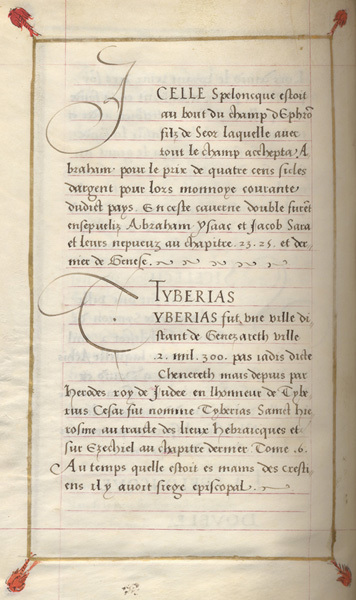 ICELLE Speloncque estoit
au bout du champ dEphrõ
filz de Seor laquelle avec
tout le champ acchepta A
braham pour le prix de quatre cens sicles
dargent pour lors monnoye courante
dudict pays. En ceste caverne double furẽt
ensepueliz Abraham Ysaac et Jacob Sara
et leurs nepueuz au chapitre. 23. 25. et der
nier de Genese.
TYBERIAS
TYBERIAS fut vne ville di
stant de Genezareth ville
2. mil. 300. pas iadis dicte
Chenereth mais depuis par
Herodes roy de Judee en lhonneur de Tybe
rius Cesar fut nomme Tyberias Sainct Hie
rosme au traicte des lieux Hebraicques et
sur Ezechiel au chapitre dernier Tome .6.
Au temps quelle estoit es mains des cresti
ens il y avoit siege episcopal.